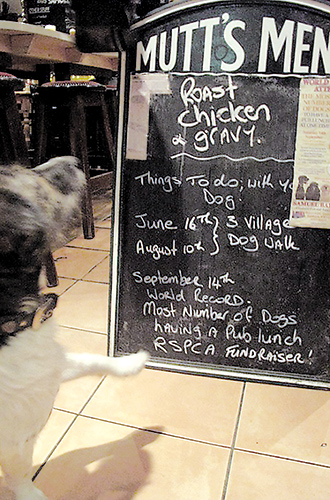 MUTT'S MEN
Roast
chicken
& gravy.
Things To do, with Yo
Dog.
June 16th } 3 Village
August 10th } Dog Walk
September 14th
World Record.
Most Number of Dogs
having a Pub lunch
RSPCA FUNDRAISER!
WORLD
ATTE
THE MOST
NUMBER
OF DOGS